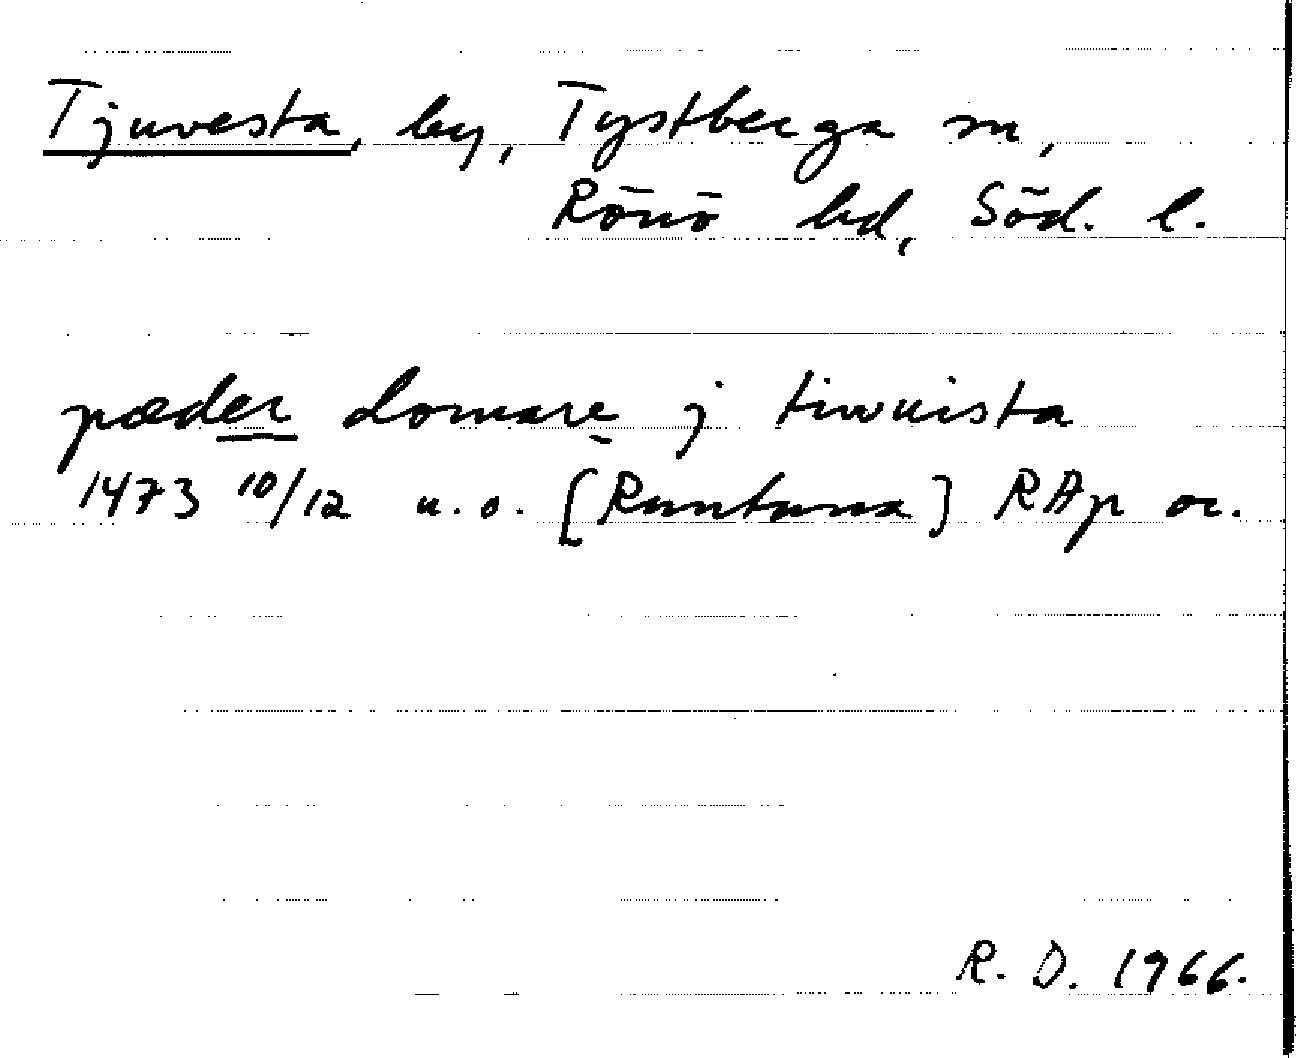 Tjuvesta, by, Tystberga sn,
Rönö hd, Söd. l.
pæder domare j tiwuista
1473 10/12 u.o. [Runtuna] RAp or.
R. D. 1966.